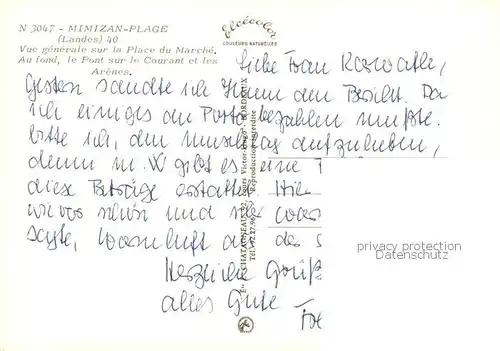 N 3047 - MIMIZAN-PLAGE
(Landes) 40
Vue générale sur la Place du Marché.
Au fond, le Pont sur le Courant et les
Arènes.
Elcécolor
COULEURS NATURELLES
Liebe Frau
Gestern sandte ich Ihnen den Bericht. Da
ich einiges an Porto bezahlen mußte.
bitte ich, den Umschlag aufzuheben,
denn in gibt es eine
diese Beträge erstattet. Hier
wie vor schön und
sagte, Warmluft das
Herzliche Grüß
alles Gute
CHATAGNEAU Cours Victor-Hugo - BORDEAUX
Reproduction interdite
privacy protection
ansichtskarten-lexikon.de